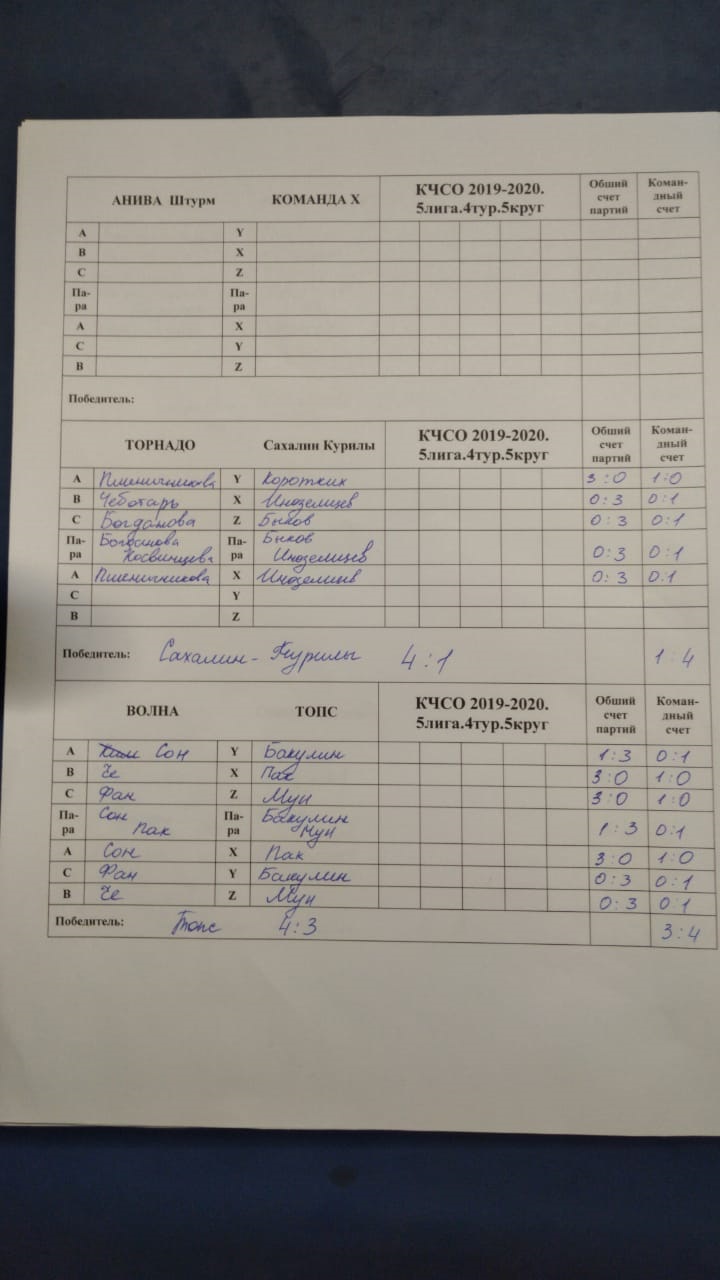 АНИВА Штурм КОМАНДА X КЧСО 2019-2020. 5лига.4тур.5круг Обший счет партий Коман-дный счет
A Y
B X
C Z
Па-ра Па-ра
A X
C Y
B Z
Победитель:
ТОРНАДО Сахалин Курилы КЧСО 2019-2020. 5лига.4тур.5круг Обший счет партий Коман-дный счет
A Пшеничникова Y Коротких 3:0 1:0
B Чеботарь X Иноземцев 0:3 0:1
C Богданова Z Быков 0:3 0:1
Па-ра Богданова Косвинцева Па-ра Быков Иноземцев 0:3 0:1
A Пшеничникова X Иноземцев 0:3 0:1
C Y
B Z
Победитель: Сахалин-Курилы 4:1 1:4
ВОЛНА ТОПС КЧСО 2019-2020. 5лига.4тур.5круг Обший счет партий Коман-дный счет
A Сон Y Бакулин 1:3 0:1
B Че X Пак 3:0 1:0
C Фан Z Мун 3:0 1:0
Па-ра Сон Пак Па-ра Бакулин Мун 1:3 0:1
A Сон X Пак 3:0 1:0
C Фан Y Бакулин 0:3 0:1
B Че Z Мун 0:3 0:1
Победитель: Топс 4:3 3:4